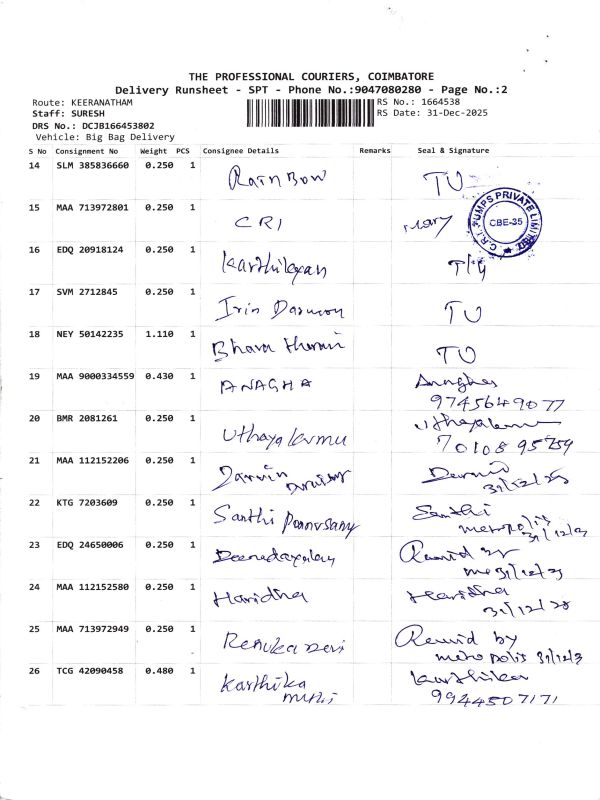 THE PROFESSIONAL COURIERS, COIMBATORE
Delivery Runsheet - SPT - Phone No.:9047080280 - Page No.:2
Route: KEERANATHAM
RS No.: 1664538
Staff: SURESH
RS Date: 31-Dec-2025
DRS No.: DCJB166453802
Vehicle: Big Bag Delivery
S No Consignment No Weight PCS Consignee Details Remarks Seal & Signature
14 SLM 385836660 0.250 1 Rainbow TU
15 MAA 713972801 0.250 1 CRI Mary
C.R.I. PUMPS PRIVATE LIMITED CBE-35
16 EDQ 20918124 0.250 1 Karthikeyan
17 SVM 2712845 0.250 1 Irin TU
18 NEY 50142235 1.110 1 Bhara TU
19 MAA 9000334559 0.430 1 ANAGHA Anagha
9745649077
20 BMR 2081261 0.250 1
21 MAA 112152206 0.250 1 Darwin
31/12/25
22 KTG 7203609 0.250 1 Santhi Ponnusamy Santhi
metropolis
31/12/25
23 EDQ 24650006 0.250 1 Deenadayalan
31/12/25
24 MAA 112152580 0.250 1 Haridha Haridha
31/12/25
25 MAA 713972949 0.250 1 Renuka Devi Received by
metropolis 31/12/25
26 TCG 42090458 0.480 1 Karthika Karthika
9944507171